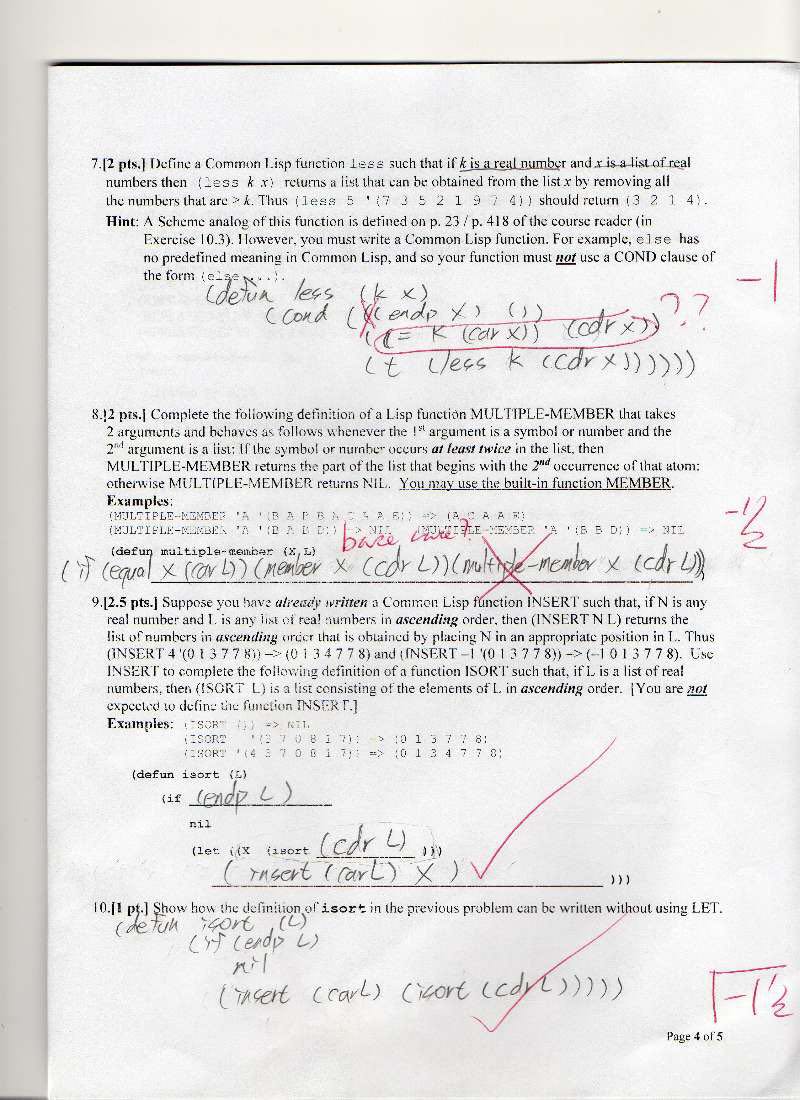 7.[2 pts.] Define a Common Lisp function less such that if k is a real number and x is a list of real
numbers then (less k x) returns a list that can be obtained from the list x by removing all
the numbers that are ≥ k. Thus (less 5 '(7 3 5 2 1 9 7 4)) should return (3 2 1 4).
Hint: A Scheme analog of this function is defined on p. 23 / p. 418 of the course reader (in
Exercise 10.3). However, you must write a Common Lisp function. For example, else has
no predefined meaning in Common Lisp, and so your function must not use a COND clause of
the form (else ...).
-1
(defun less (k x)
(cond ((endp x) ())
((= k (car x)) (cdr x)) ??
(t (less k (cdr x))))))
8.[2 pts.] Complete the following definition of a Lisp function MULTIPLE-MEMBER that takes
2 arguments and behaves as follows whenever the 1st argument is a symbol or number and the
2nd argument is a list: If the symbol or number occurs at least twice in the list, then
MULTIPLE-MEMBER returns the part of the list that begins with the 2nd occurrence of that atom;
otherwise MULTIPLE-MEMBER returns NIL. You may use the built-in function MEMBER.
Examples:
(MULTIPLE-MEMBER 'A '(B A B B A C A A E)) => (A C A A E)
(MULTIPLE-MEMBER 'A '(B A B D)) => NIL (MULTIPLE-MEMBER 'A '(B B D)) => NIL
-1/2
base case?
(defun multiple-member (X L)
(if (equal x (car L)) (member x (cdr L)) (multiple-member x (cdr L)))
9.[2.5 pts.] Suppose you have already written a Common Lisp function INSERT such that, if N is any
real number and L is any list of real numbers in ascending order, then (INSERT N L) returns the
list of numbers in ascending order that is obtained by placing N in an appropriate position in L. Thus
(INSERT 4 '(0 1 3 7 7 8)) –> (0 1 3 4 7 7 8) and (INSERT –1 '(0 1 3 7 7 8)) –> (–1 0 1 3 7 7 8). Use
INSERT to complete the following definition of a function ISORT such that, if L is a list of real
numbers, then (ISORT L) is a list consisting of the elements of L in ascending order. [You are not
expected to define the function INSERT.]
Examples: (ISORT ()) => NIL
(ISORT '(3 7 0 8 1 7)) => (0 1 3 7 7 8)
(ISORT '(4 3 7 0 8 1 7)) => (0 1 3 4 7 7 8)
(defun isort (L)
(if (endp L)
nil
(let ((X (isort (cdr L) )))
(insert (car L) X ) )))
10.[1 pt.] Show how the definition of isort in the previous problem can be written without using LET.
(defun isort (L)
(if (endp L)
nil
(insert (car L) (isort (cdr L)))))
-1 1/2
Page 4 of 5